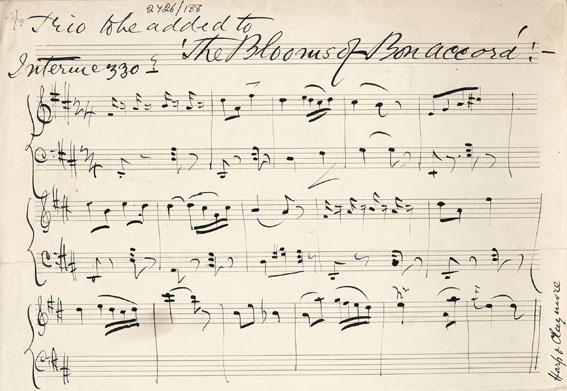 2426/186
Trio to be added to
'The Blooms of Bonaccord':-
Harp & Claymore